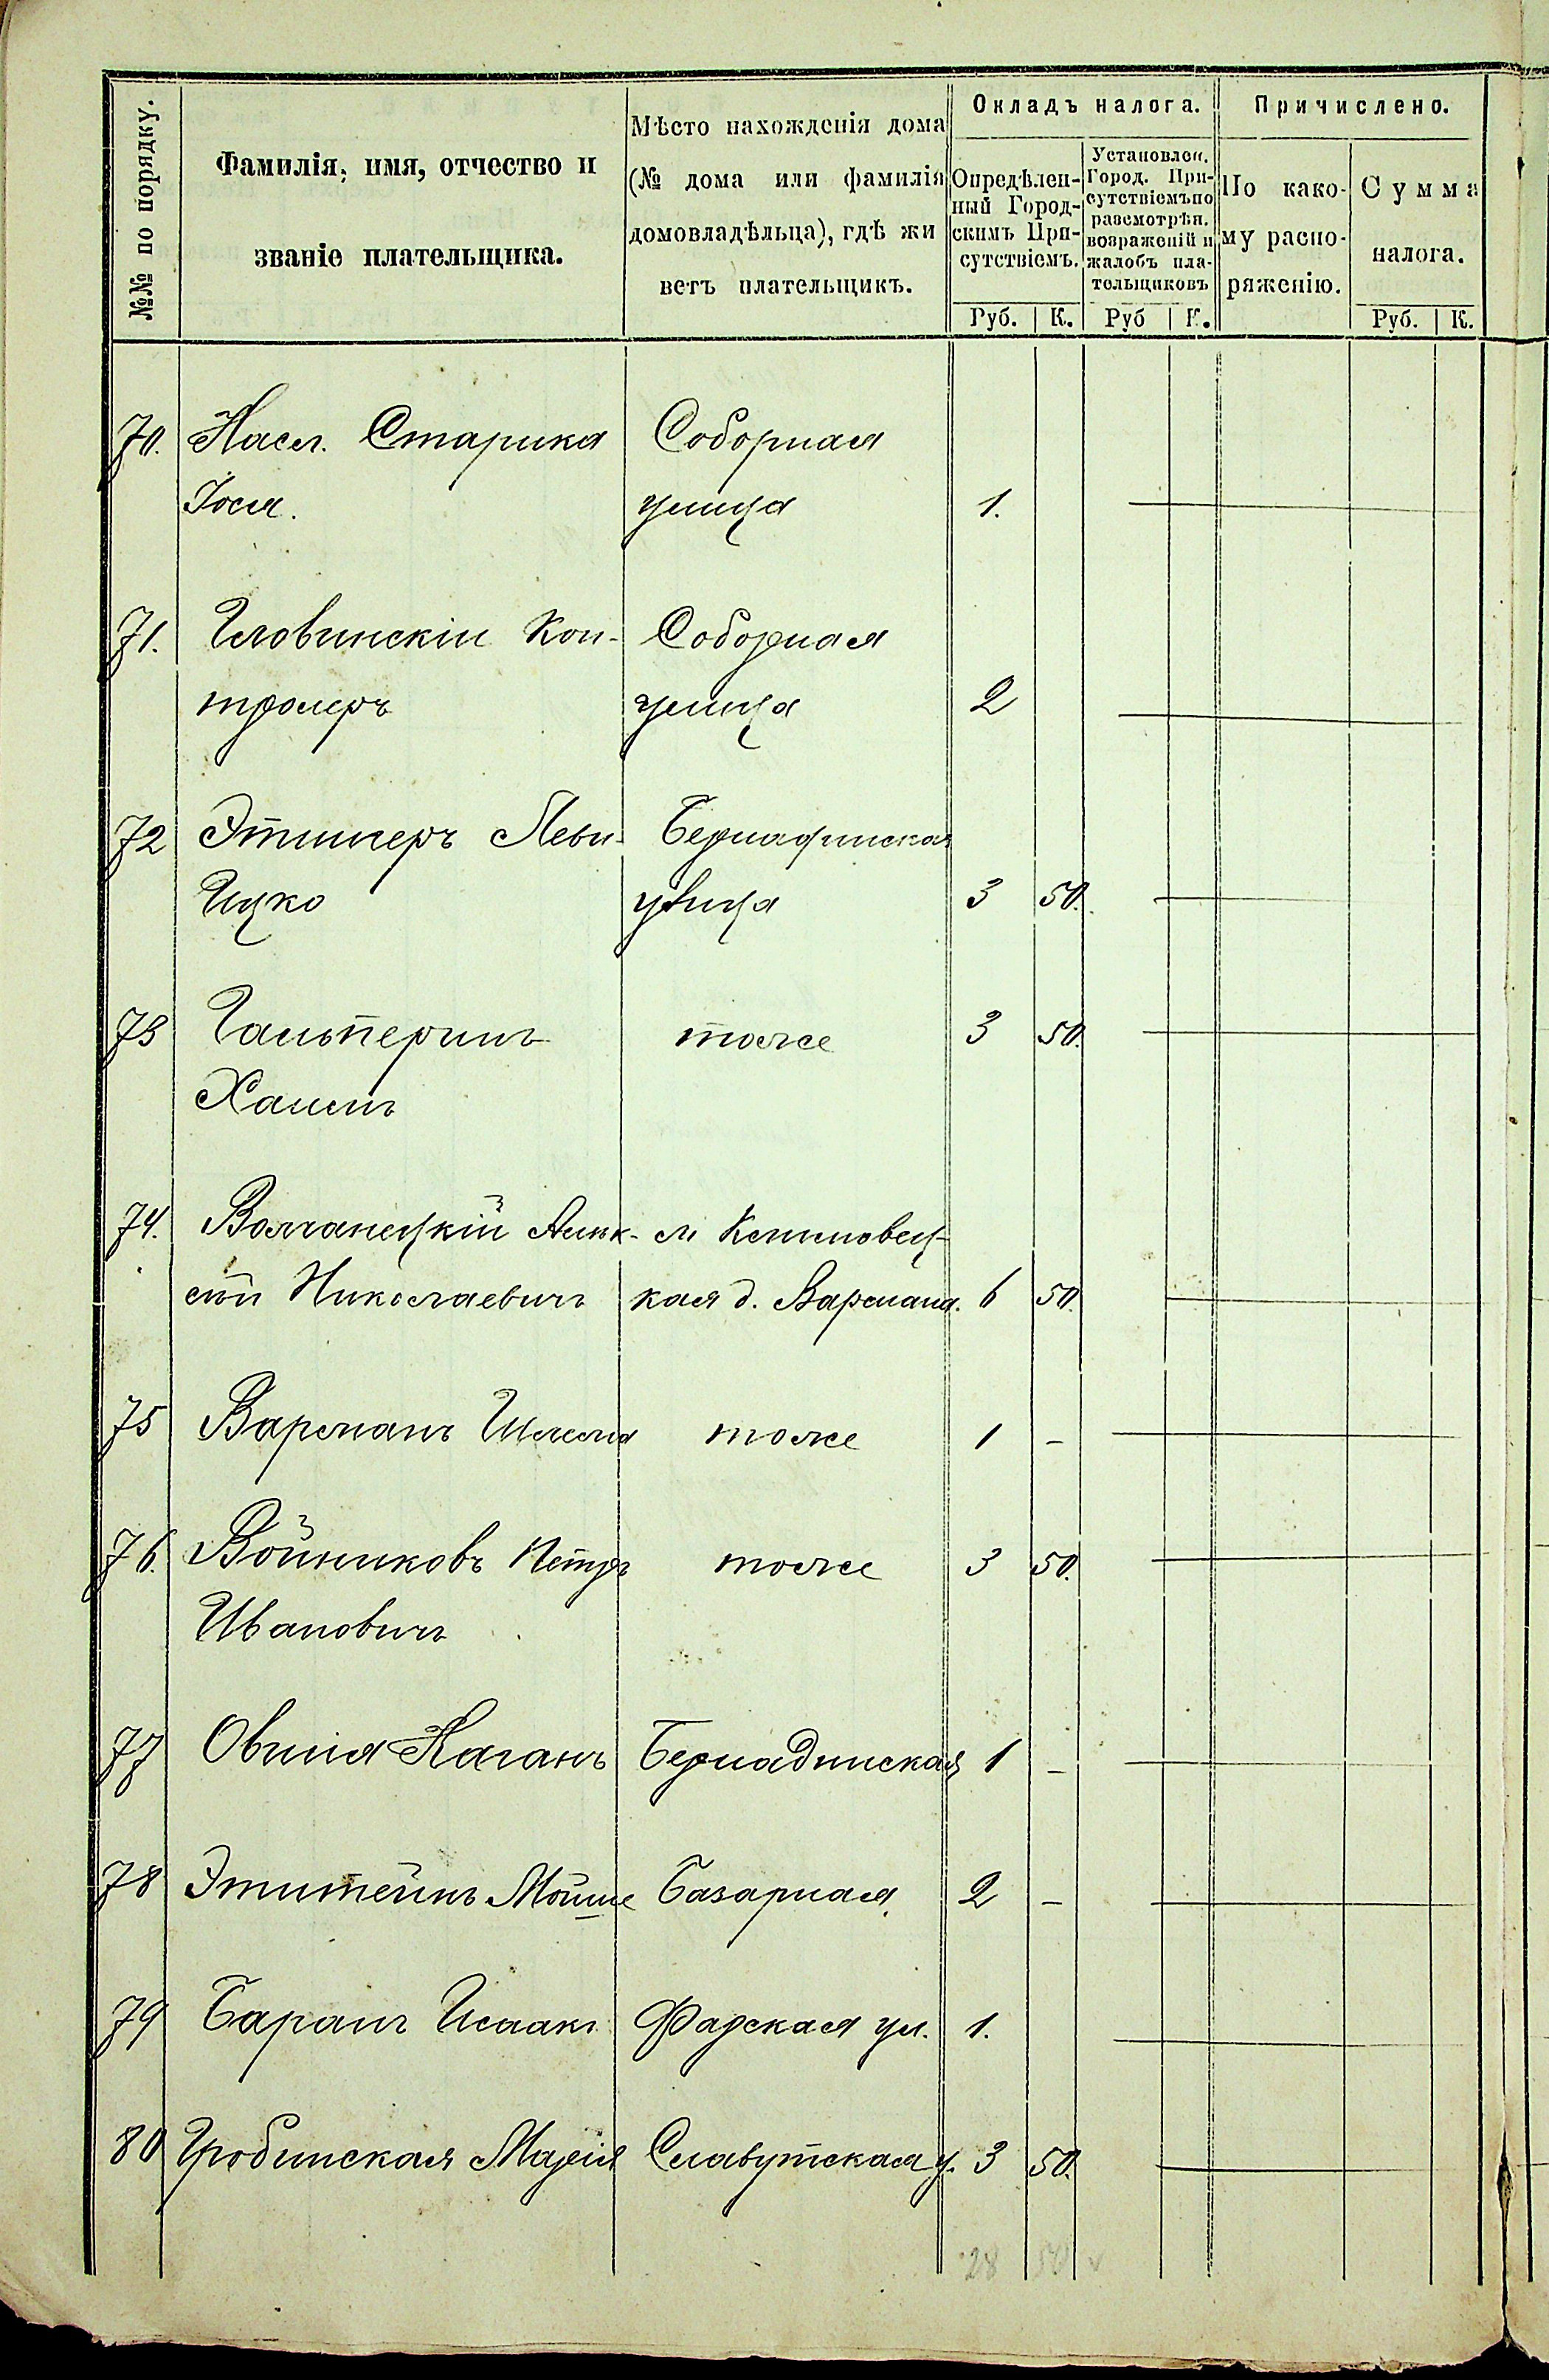 №№ по порядку.
Фамилія, имя, отчество и
званіе плательщика.
Мѣсто нахожденія дома
(№ дома или фамилія
домовладѣльца), гдѣ жи
ветъ плательщикъ.
Окладъ налога.
Опредѣлен-
ный Город-
скимъ При-
сутствіемъ.
Установлен.
Город. При-
сутствіемъ по
разсмотрѣн.
возраженій и
жалобъ пла-
тельщиковъ
Причислено.
По како-
му распо-
ряженію.
Сумма
налога.
Руб. К. Руб К. Руб. К.
70. Насл. Старика Соборная
Іося. улица 1.
71. Иловинскій Кон- Соборная
тролеръ улица 2
72 Этингеръ Леви- Бернардинская
Ицко улица 3 50.
73 Гальперинъ тоже 3 50.
Хаимъ
74. Волчанецкій Алек-
сѣй Николаевичъ кая д. Вармана. 6 50.
75 Варманъ Шлема тоже 1 –
76. Войниковъ Петръ тоже 3 50.
Ивановичъ
77 Овшія Каганъ Бернадинская 1 –
78 Эпштейнъ Мойше Базарная 2 –
79 Баранъ Исаакъ Фарская ул. 1.
80 Гробинская Марія Славутская у. 3 50.
28 50